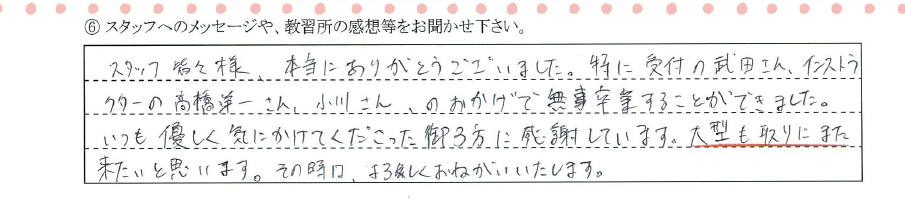 ⑥ スタッフへのメッセージや、教習所の感想等をお聞かせ下さい。
スタッフ皆々様、本当にありがとうございました。特に受付の武田さん、インストラ
クターの高橋洋一さん、小川さん、のおかげで無事卒業することができました。
いつも優しく気にかけてくださった御3方に感謝しています。大型も取りにまた
来たいと思います。その時は、よろしくおねがいいたします。